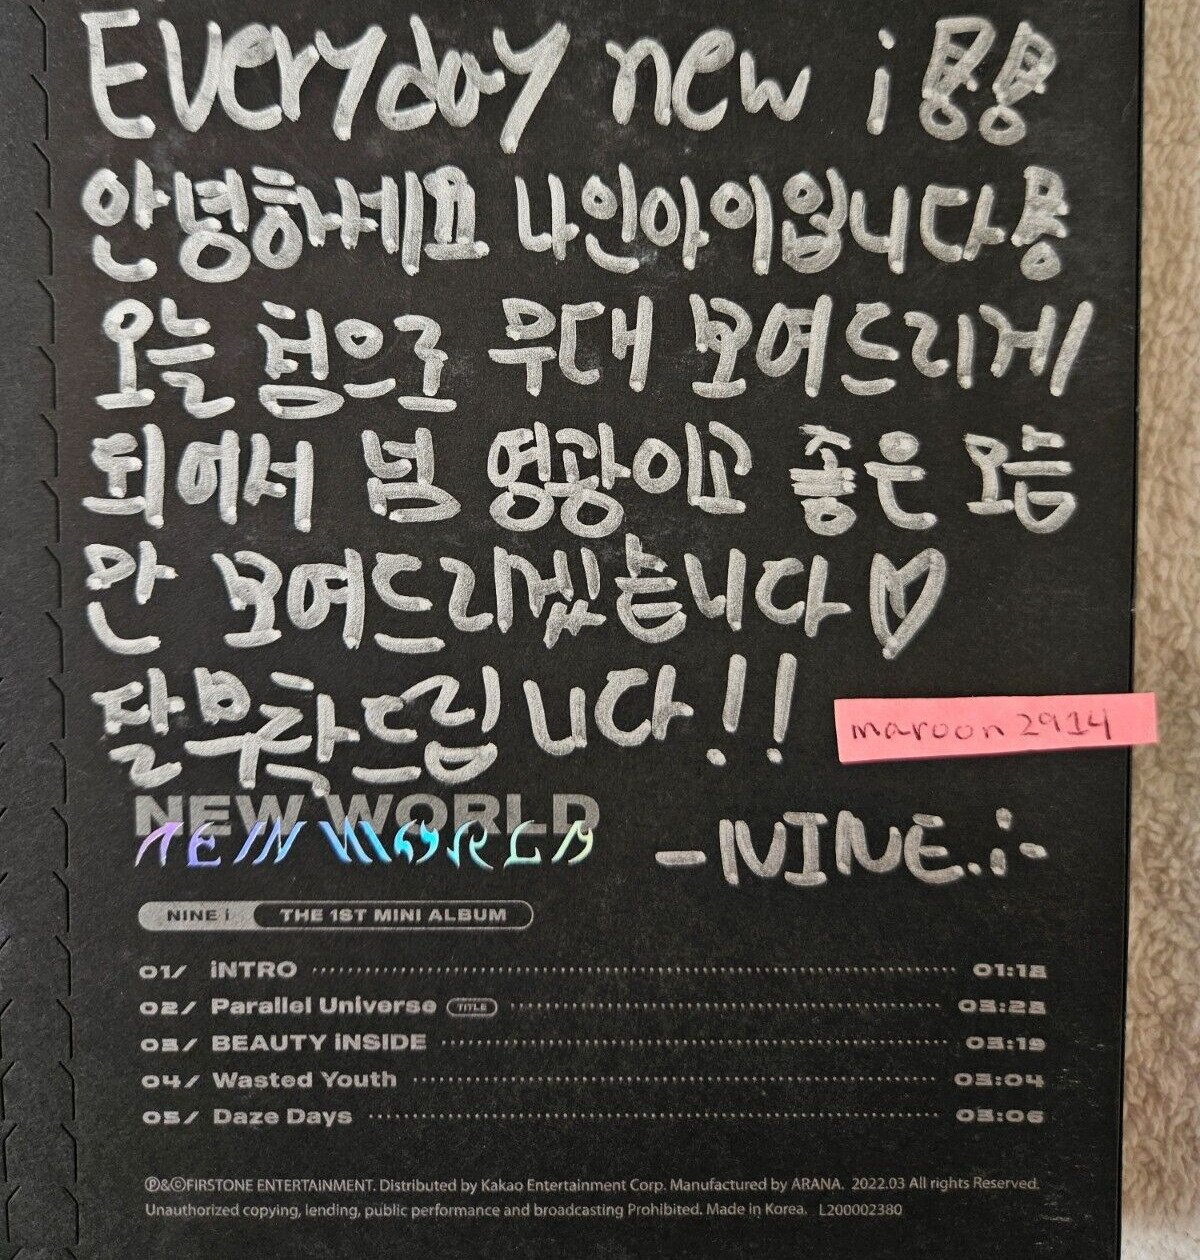 Everyday new i!!
안녕하세요 나인아이입니다!
오늘 첨으로 무대 보여드리게
되어서 넘 영광이고 좋은 모습
만 보여드리겠습니다♡
잘 부탁드립니다!!
maroon2914
NEW WORLD
NEW WORLD
-NINE.i-
NINE i THE 1ST MINI ALBUM
01/ iNTRO 01:18
02/ Parallel Universe TITLE 03:23
03/ BEAUTY iNSIDE 03:19
04/ Wasted Youth 03:04
05/ Daze Days 03:06
Ⓟ&ⒸFIRSTONE ENTERTAINMENT. Distributed by Kakao Entertainment Corp. Manufactured by ARANA. 2022.03 All rights Reserved.
Unauthorized copying, lending, public performance and broadcasting Prohibited. Made in Korea. L200002380